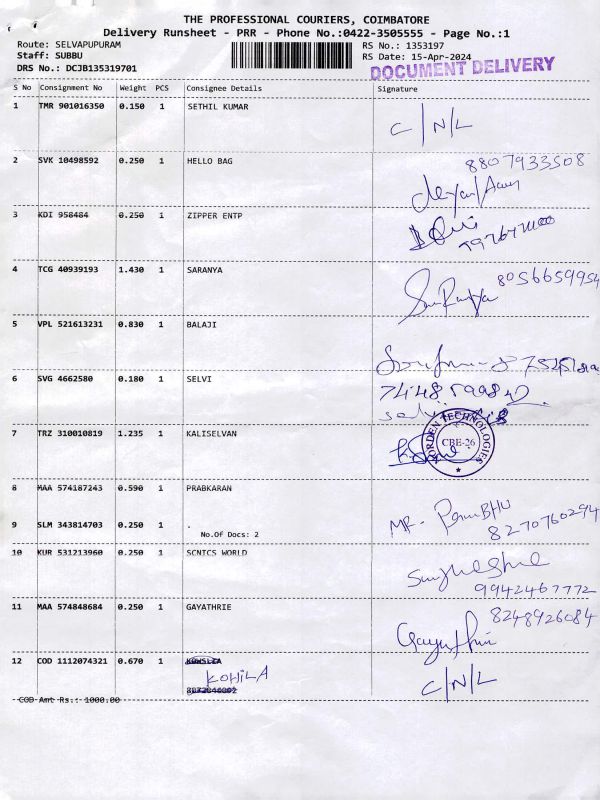 THE PROFESSIONAL COURIERS, COIMBATORE
Delivery Runsheet - PRR - Phone No.:0422-3505555 - Page No.:1
Route: SELVAPUPURAM
RS No.: 1353197
Staff: SUBBU
RS Date: 15-Apr-2024
DRS No.: DCJB135319701
DOCUMENT DELIVERY
S No Consignment No Weight PCS Consignee Details Signature
1 TMR 901016350 0.150 1 SETHIL KUMAR
C/N/L
2 SVK 10498592 0.250 1 HELLO BAG
8807933508
3 KDI 958484 0.250 1 ZIPPER ENTP
4 TCG 40939193 1.430 1 SARANYA
8056659954
5 VPL 521613231 0.830 1 BALAJI
6 SVG 4662580 0.180 1 SELVI
7 TRZ 310010819 1.235 1 KALISELVAN
ORDEN TECHNOLOGIES
CBE-26
8 MAA 574187243 0.590 1 PRABKARAN
9 SLM 343814703 0.250 1 .
No.Of Docs: 2
8270760294
10 KUR 531213960 0.250 1 SCNICS WORLD
9942467772
11 MAA 574848684 0.250 1 GAYATHRIE
8248926084
Gayathiri
12 COD 1112074321 0.670 1
KOHILA
C/N/L
COD Amt Rs.: 1000.00